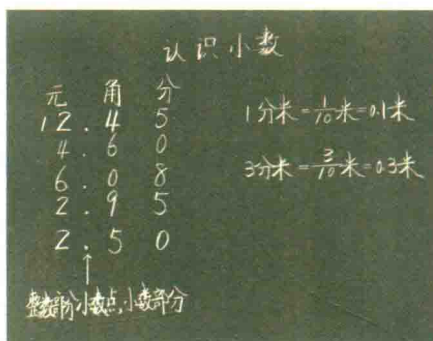 认识小数
元 角 分
12.4 5
4.6 0
6.0 8
2.9 5
2.5 0
↑
整数部分,小数点,小数部分
1分米=1/10米=0.1米
3分米=3/10米=0.3米